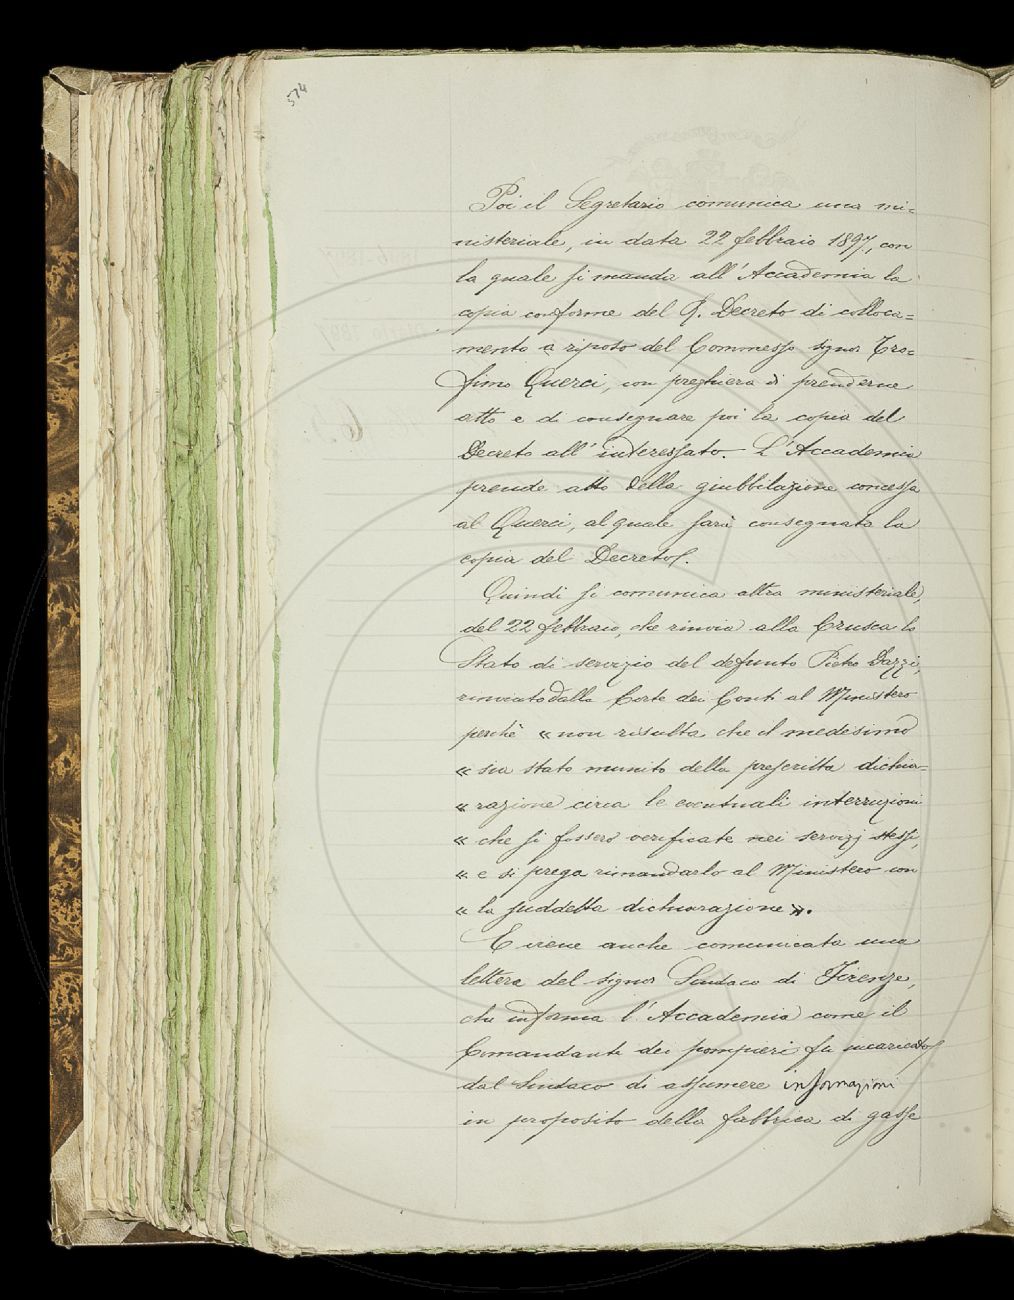 574
Poi il Segretario comunica una mi=
nisteriale, in data 22 febbraio 1897, con
la quale si manda all'Accademia la
copia conforme del R. Decreto di colloca=
mento a riposo del Commesso signor Tro=
fimo Querci, con preghiera di prenderne
atto e di consegnare poi la copia del
Decreto all'interessato. L'Accademia
prende atto della giubbilazione concessa
al Querci, al quale sarà consegnata la
copia del Decreto.
Quindi si comunica altra ministeriale,
del 22 febbraio, che rinvia alla Crusca lo
Stato di servizio del defunto Pietro Dazzi,
rinviato dalla Corte dei Conti al Ministero
perchè « non risulta che il medesimo
« sia stato munito della prescritta dichia=
« razione circa le eventuali interruzioni
« che si fossero verificate nei servizj stessi,
« e si prega rimandarlo al Ministero con
« la suddetta dichiarazione ».
E viene anche comunicata una
lettera del signor Sindaco di Firenze,
che informa l'Accademia come il
Comandante dei pompieri fu incaricato
dal Sindaco di assumere informazioni
in proposito della fabbrica di gasse